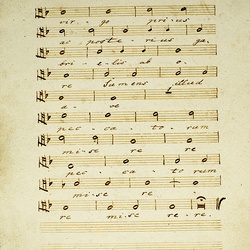 vir - go pri - us
ac poste - ri - us ga -
bri - e - lis ab o -
re Sumens illud
a - ve
pec - ca - to - rum
mi - se - re - re
pec - ca - to - rum
mi - se - re
re mi - se - re - re.